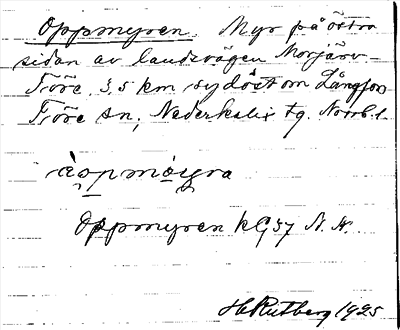 Oppmyren. Myr på östra
sidan av landsvägen Morjärv-
Töre, 3,5 km sydöst om Långsjön
Töre sn, Nederkalix tg. Norrb. l.
Oppmyren kG 37 N. N.
H. Rutberg 1925